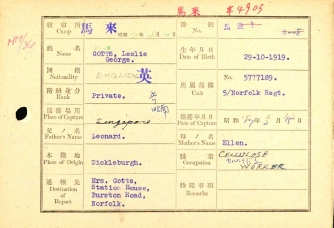 馬來 # 4903
收容所 Camp 馬來 昭和 年 月 日
番號 No. 馬 1
姓名 Name GOTTS, Leslie George.
生年月日 Date of Birth 29-10-1919.
國籍 Nationality ENGLISH 英
所屬部隊 Unit No. 5777189. 5/Norfolk Regt.
階級身分 Rank Private.
捕獲場所 Place of Capture Singapore
捕獲年月日 Date of Capture 昭和 17 年 2 月 15 日
父ノ名 Father's Name Leonard.
母ノ名 Mother's Name Ellen.
本籍地 Place of Origin Dickleburgh.
職業 Occupation CELLULOSE WORKER
通報先 Destination of Report Mrs. Gotts, Station House, Burston Road, Norfolk.
特記事項 Remarks